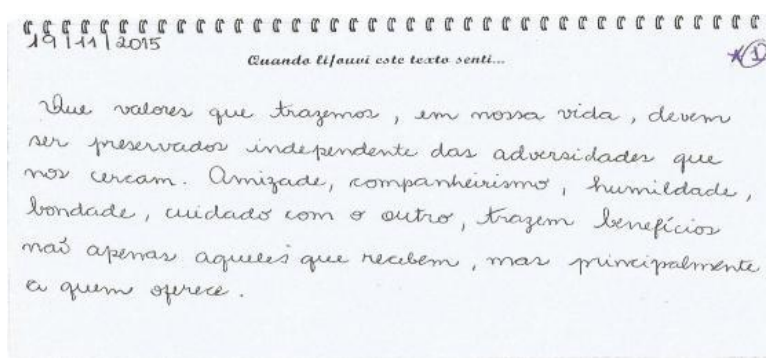 19/11/2015
Quando li/ouvi este texto senti...
*1
Que valores que trazemos, em nossa vida, devem
ser preservados independente das adversidades que
nos cercam. Amizade, companheirismo, humildade,
bondade, cuidado com o outro, trazem benefícios
naõ apenas aqueles que recebem, mas principalmente
a quem oferece.